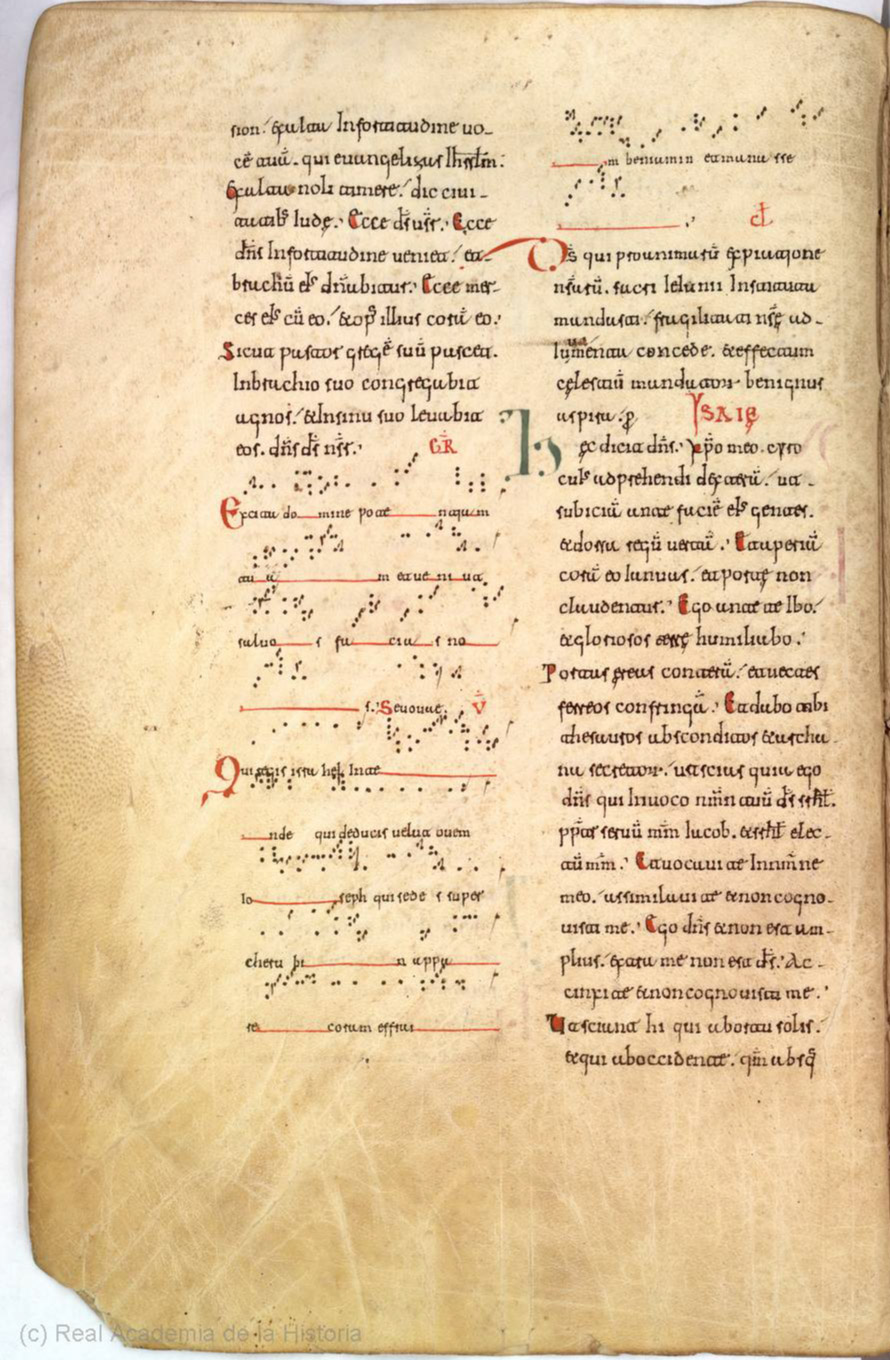 sion. exalta Infortitudine uo-
cē tuā. qui euangelizas Ihrslm:
Exalta noli timere. dic ciui-
tatib; Iude. Ecce d̄s ur̄. Ecce
dn̄s Infortitudine ueniet. et
brachiū ei; dn̄abitur. Ecce mer-
ces ei; cū eo. & op; illius corā eo.
Sicut pastor gregē suū pascet.
Inbrachio suo congregabit
agnos. & Insinu suo leuabit
eos. dn̄s d̄s nr̄. GR
Excita do mine pote ntiam
tu a m et ue ni ut
saluo s fa cia s no
s. Seuouae. V
Qui regis isra hel Inte
nde qui deducis uelut ouem
Io seph qui sede s super
cheru bi n appa
re coram effrai
m beniamin et manasse
cl
Ds qui pro animarū expiatione
nr̄arū. sacri Ieiunii Instituta
mandasti. fragilitati nr̄e ad-
iumenta concede. & effectum
celestiū mandatorum benignus
aspira. p YSAIE
Hec dicit dn̄s. xp̄o meo cyro
cui; adprehendi dexterā. ut
subiciā ante faciē ei; gentes.
& dorsa regū uertā. Et aperiā
corā eo Ianuas. et porte non
claudentur. Ego ante te Ibo.
& gloriosos terre humiliabo.
Portas ereas conterā. et uectes
ferreos confringā. Et dabo tibi
thesauros absconditos & archa
na secretorum. ut scias quia ego
dn̄s qui Inuoco nm̄n tuū d̄s isrl̄.
ppt̄ seruū mm̄ Iacob. & isrl̄ elec-
tū mm̄. Et uocaui te In nm̄ne
meo. assimilaui te & non cogno-
uisti me. Ego dn̄s & non est am-
plius. extra me non est d̄s. Ac-
cinxi te & non cognouisti me.
Ut sciant hi qui ab ortu solis.
& qui ab occidente. qm̄ absq;
(c) Real Academia de la Historia